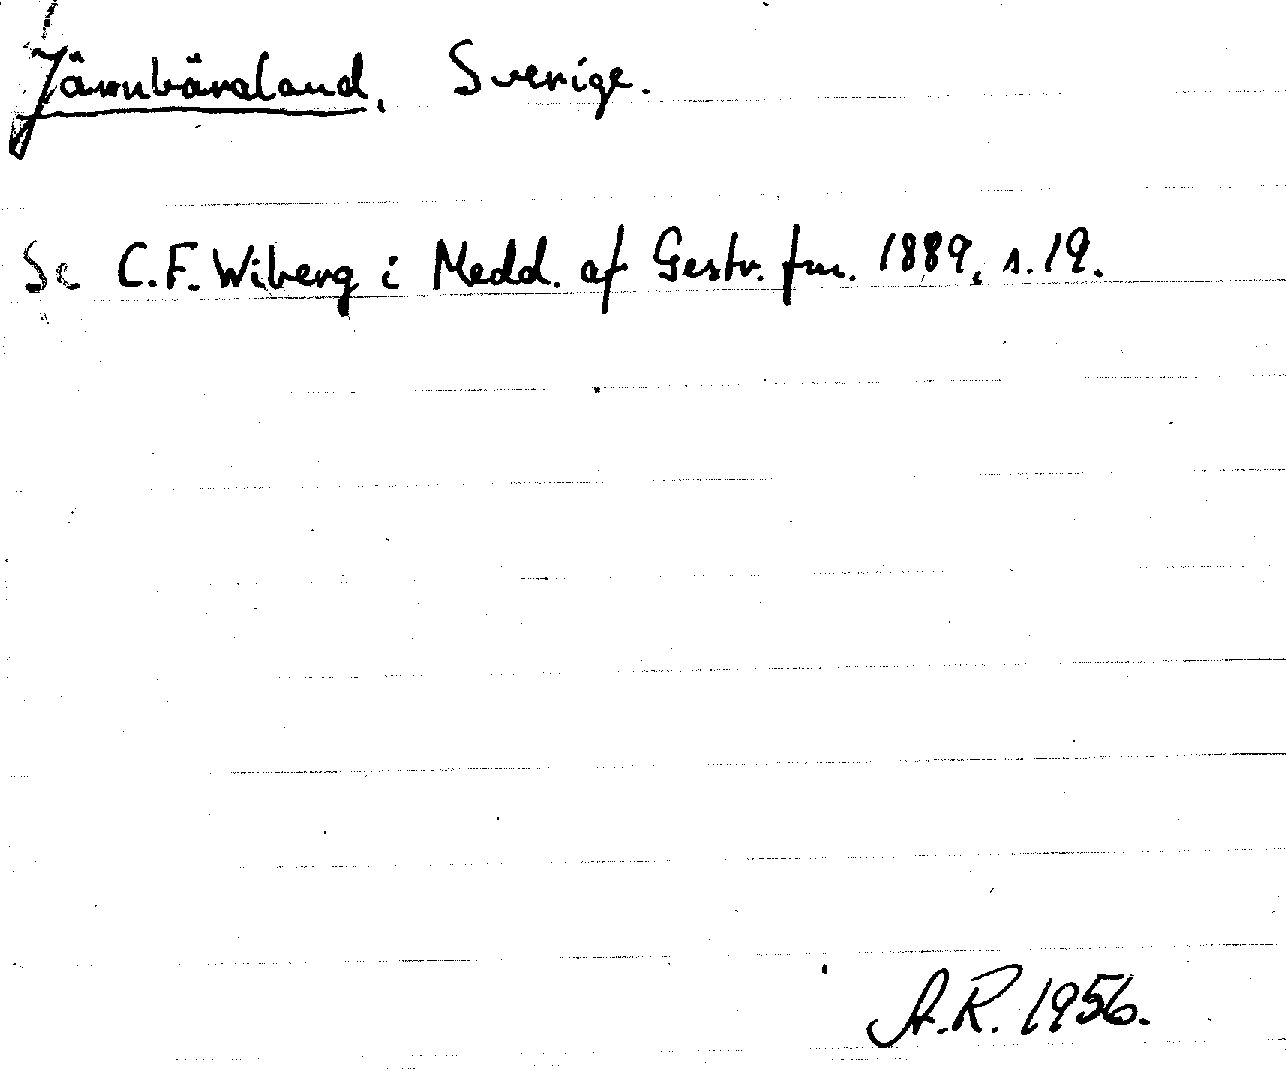 Järnbäraland, Sverige.
Se C.F. Wiberg i Medd. af Gestr. fm. 1889, s. 19.
A.R. 1956.